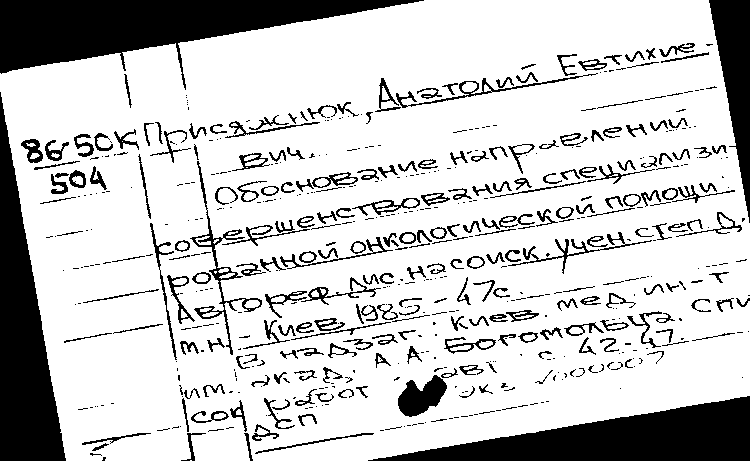 86-50К Присяжнюк, Анатолий Евтихие-
504 вич.
Обоснование направлений
совершенствования специализи-
рованной онкологической помощи:
Автореф. дис. на соиск. учен. степ Д.
м.н. - Киев, 1985 - 47с.
В надзаг: Киев. мед. ин-т
им. акад. А. А. Богомольца. Спи
сок работ авт с 42-47.
ДСП экз